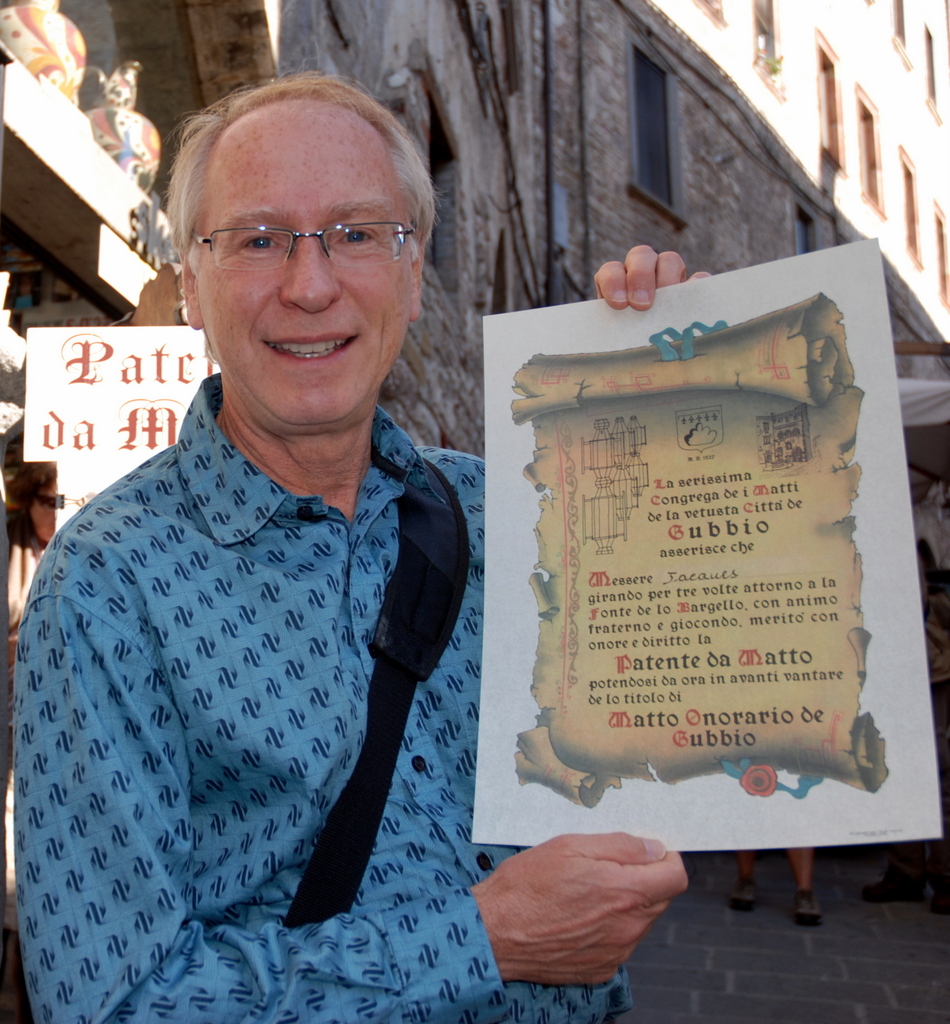 Pate
da M
La serissima
Congrega de i Matti
de la vetusta Città de
Gubbio
asserisce che
Messere Jacques
girando per tre volte attorno a la
Fonte de lo Bargello, con animo
fraterno e giocondo, meritò con
onore e diritto la
Patente da Matto
potendosi da ora in avanti vantare
de lo titolo di
Matto Onorario de
Gubbio